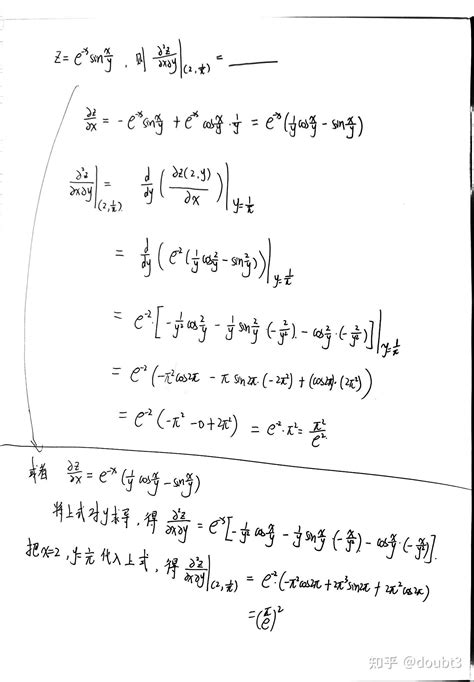 z = e^{-x} sin x/y , 则 ∂²z/∂x∂y |_{(2, 1/π)} = ______
∂z/∂x = -e^{-x} sin x/y + e^{-x} cos x/y · 1/y = e^{-x} (1/y cos x/y - sin x/y)
∂²z/∂x∂y |_{(2, 1/π)} = d/dy (∂z(2,y)/∂x) |_{y=1/π}
= d/dy (e^{-2} (1/y cos 2/y - sin 2/y)) |_{y=1/π}
= e^{-2} · [-1/y² cos 2/y - 1/y sin 2/y · (-2/y²) - cos 2/y · (-2/y²)] |_{y=1/π}
= e^{-2} (-π² cos2π - π sin2π · (-2π²) + (cos2π) · (2π²))
= e^{-2} (-π² - 0 + 2π²) = e^{-2} · π² = π²/e²
或者 ∂z/∂x = e^{-x} (1/y cos x/y - sin x/y)
将上式对y求导, 得 ∂²z/∂x∂y = e^{-x} [-1/y² cos x/y - 1/y sin x/y · (-x/y²) - cos x/y · (-x/y²)].
把 x=2, y=1/π 代入上式, 得 ∂²z/∂x∂y |_{(2, 1/π)} = e^{-2} · (-π² cos2π + 2π³ sin2π + 2π² cos2π)
= (π/e)²
知乎 @doubt3